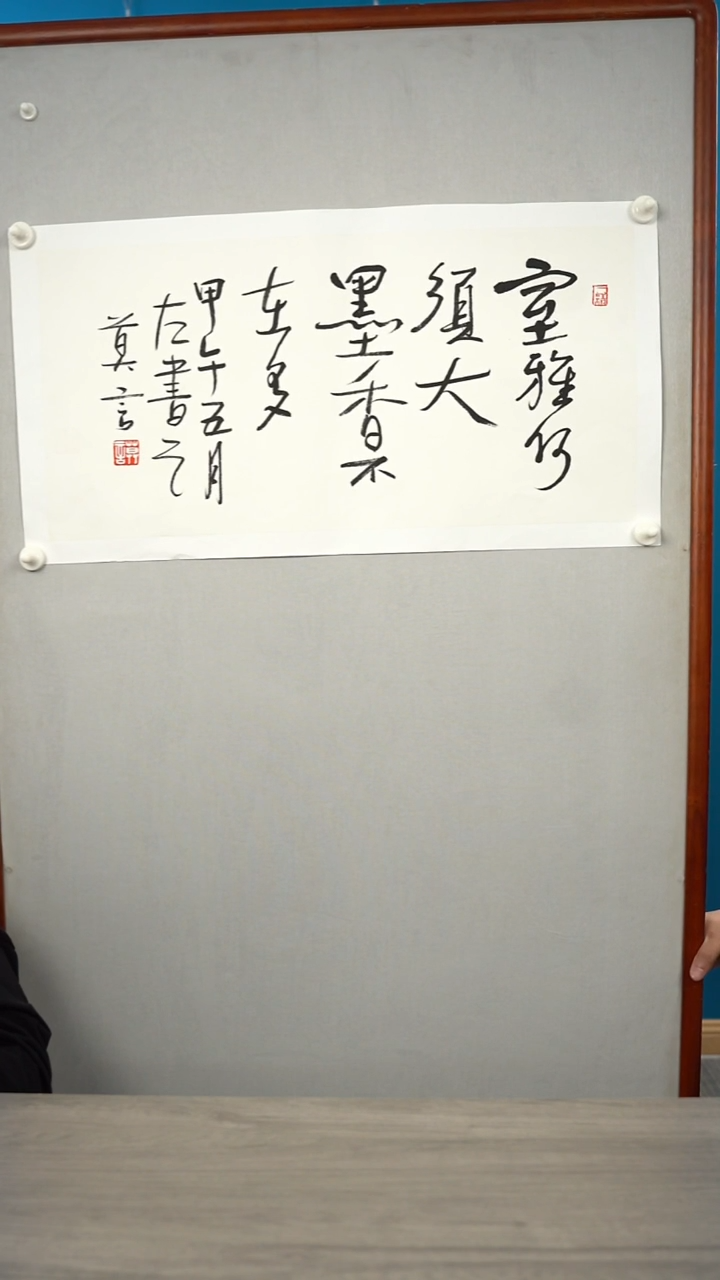 室雅何
須大
墨香不
在多
甲午五月
左書之
莫言
莫言